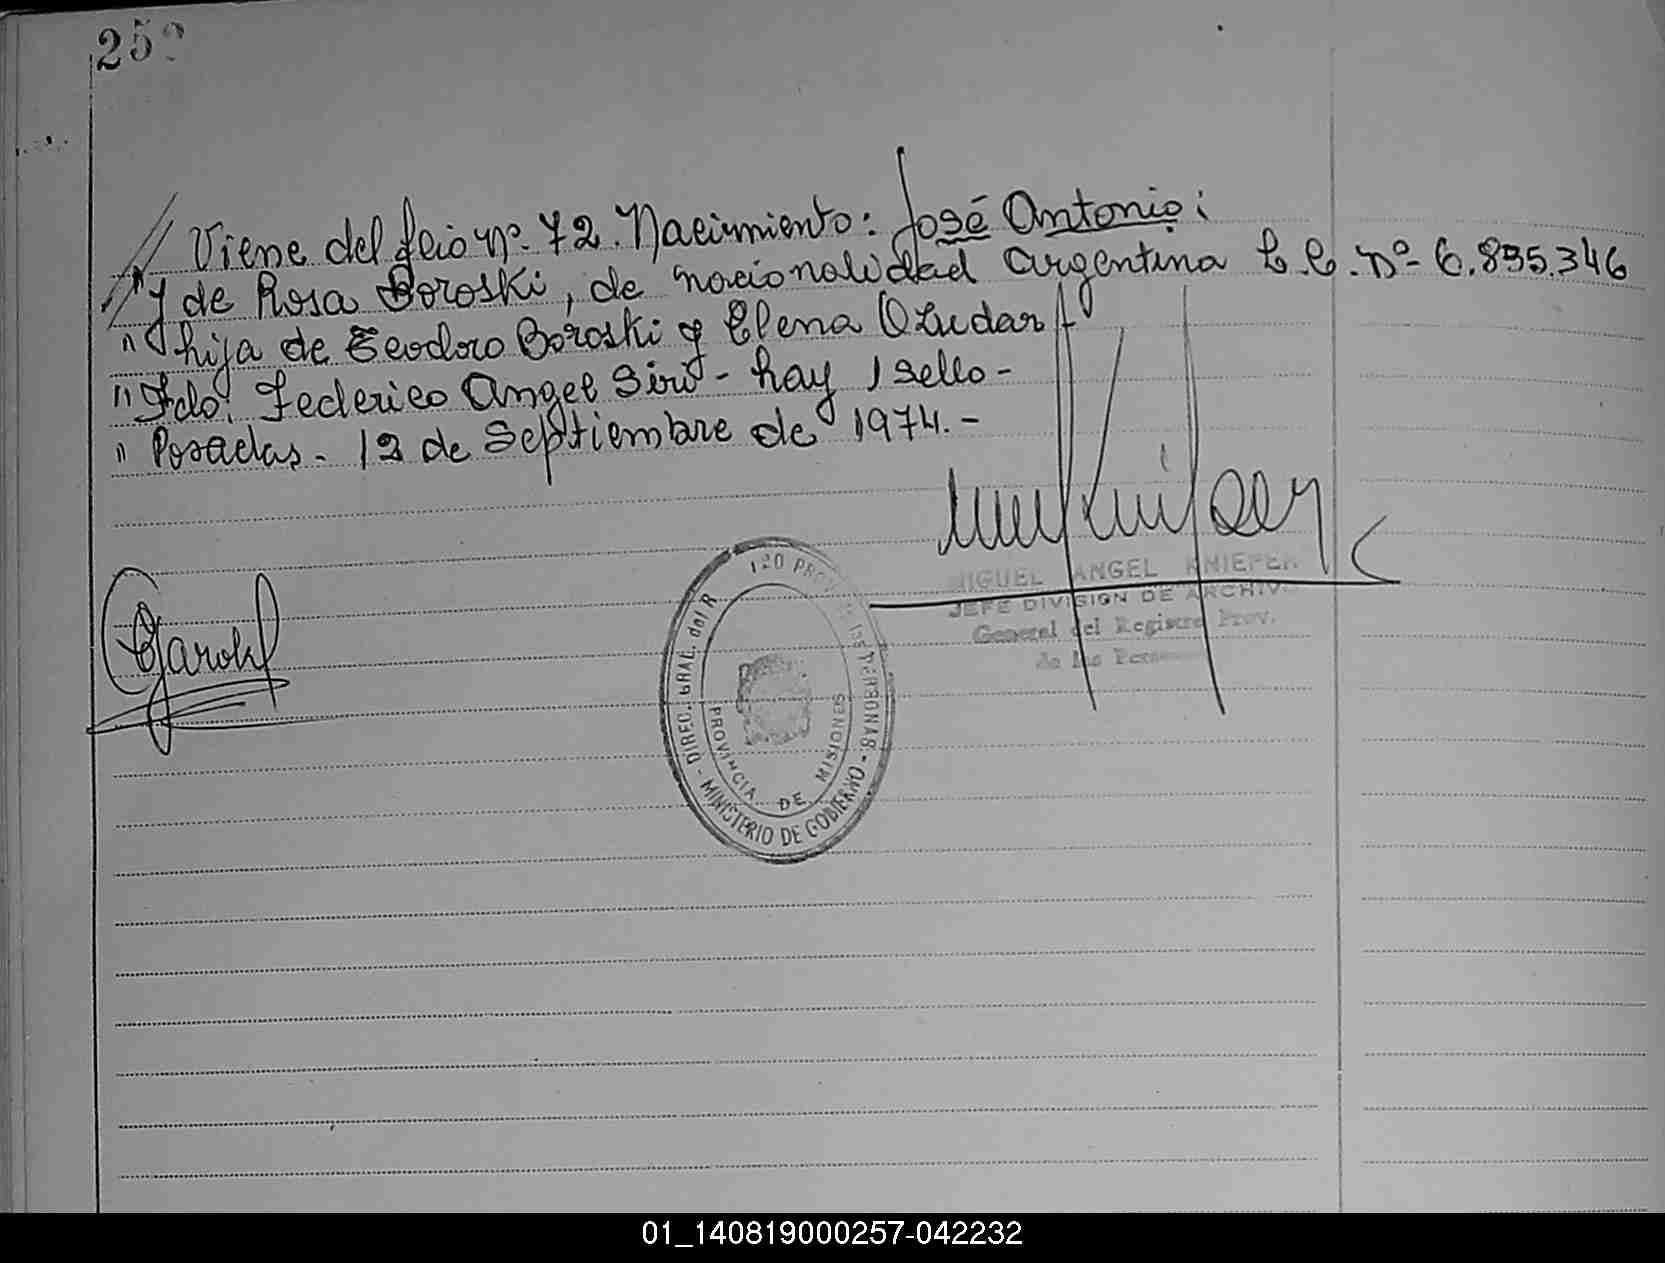 25
// Viene del folio Nº 72. Nacimiento: José Antonio:
" y de Rosa Boroski, de nacionalidad argentina L.C. Nº 6.835.346
" hija de Teodoro Boroski y Elena
" Fdo: Federico Angel Siró - hay 1 sello -
" Posadas - 12 de Septiembre de 1974.-
MIGUEL ANGEL KNIEFER
JEFE DIVISION DE ARCHIVO
General del Registro Prov.
de las
DIREC. GRAL. del R PROV. de las PERSONAS - MINISTERIO DE GOBIERNO -
PROVINCIA DE MISIONES
01_140819000257-042232